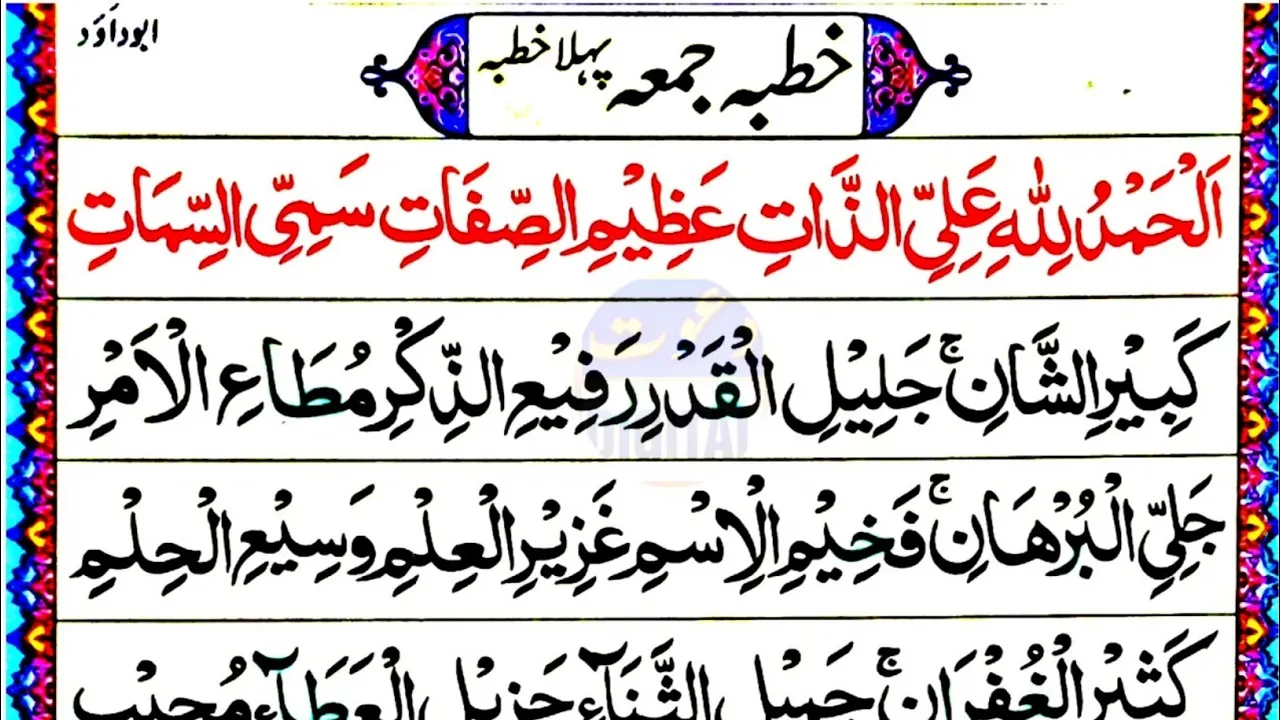 ابوداؤد
خطبہ جمعہ پہلا خطبہ
اَلْحَمْدُ لِلّٰهِ عَلِيِّ الذَّاتِ عَظِيْمِ الصِّفَاتِ سَمِيِّ السِّمَاتِ
كَبِيْرِ الشَّانِ ۚ جَلِيْلِ الْقَدْرِ رَفِيْعِ الذِّكْرِ مُطَاعِ الْاَمْرِ
جَلِيِّ الْبُرْهَانِ ۚ فَخِيْمِ الْاِسْمِ غَزِيْرِ الْعِلْمِ وَسِيْعِ الْحِلْمِ
كَثِيْرِ الْغُفْرَانِ ۚ جَمِيْلِ الثَّنَآءِ جَزِيْلِ الْعَطَآءِ مُجِيْبِ
دعوت
DIGITAL